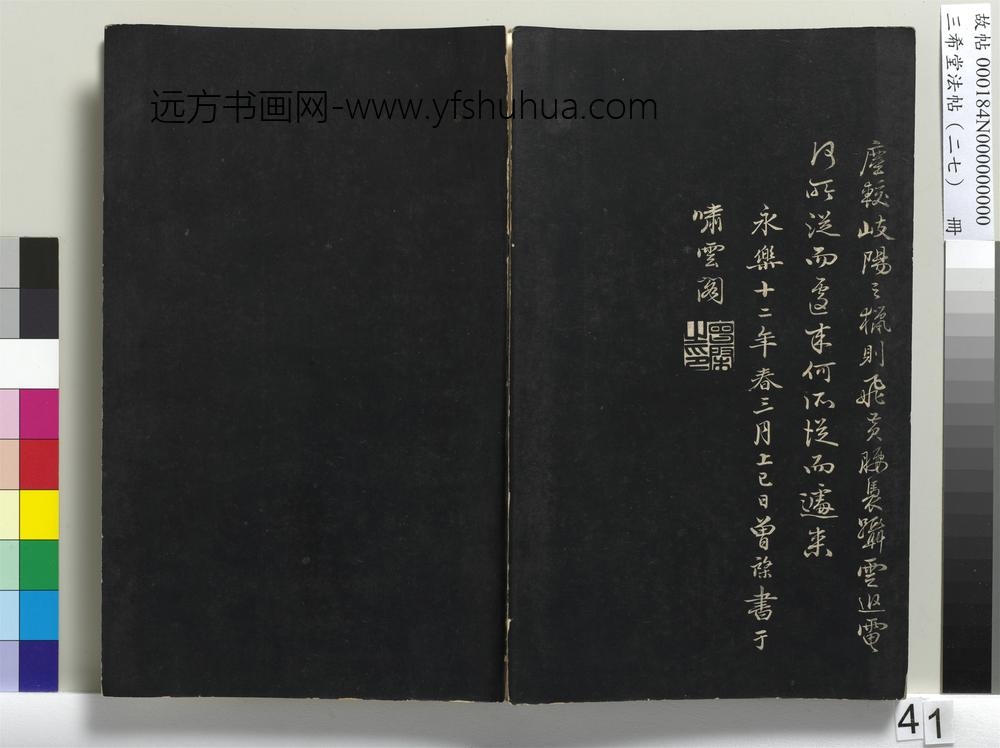 远方书画网-www.yfshuhua.com
故帖 000184N000000000
三希堂法帖(二七) 册
塵較岐陽之獵則飛黃騕褭躡雲追電
何所從而遽來何所從而遽來
永樂十二年春三月上巳日曾棨書于
嘯雲閣
41